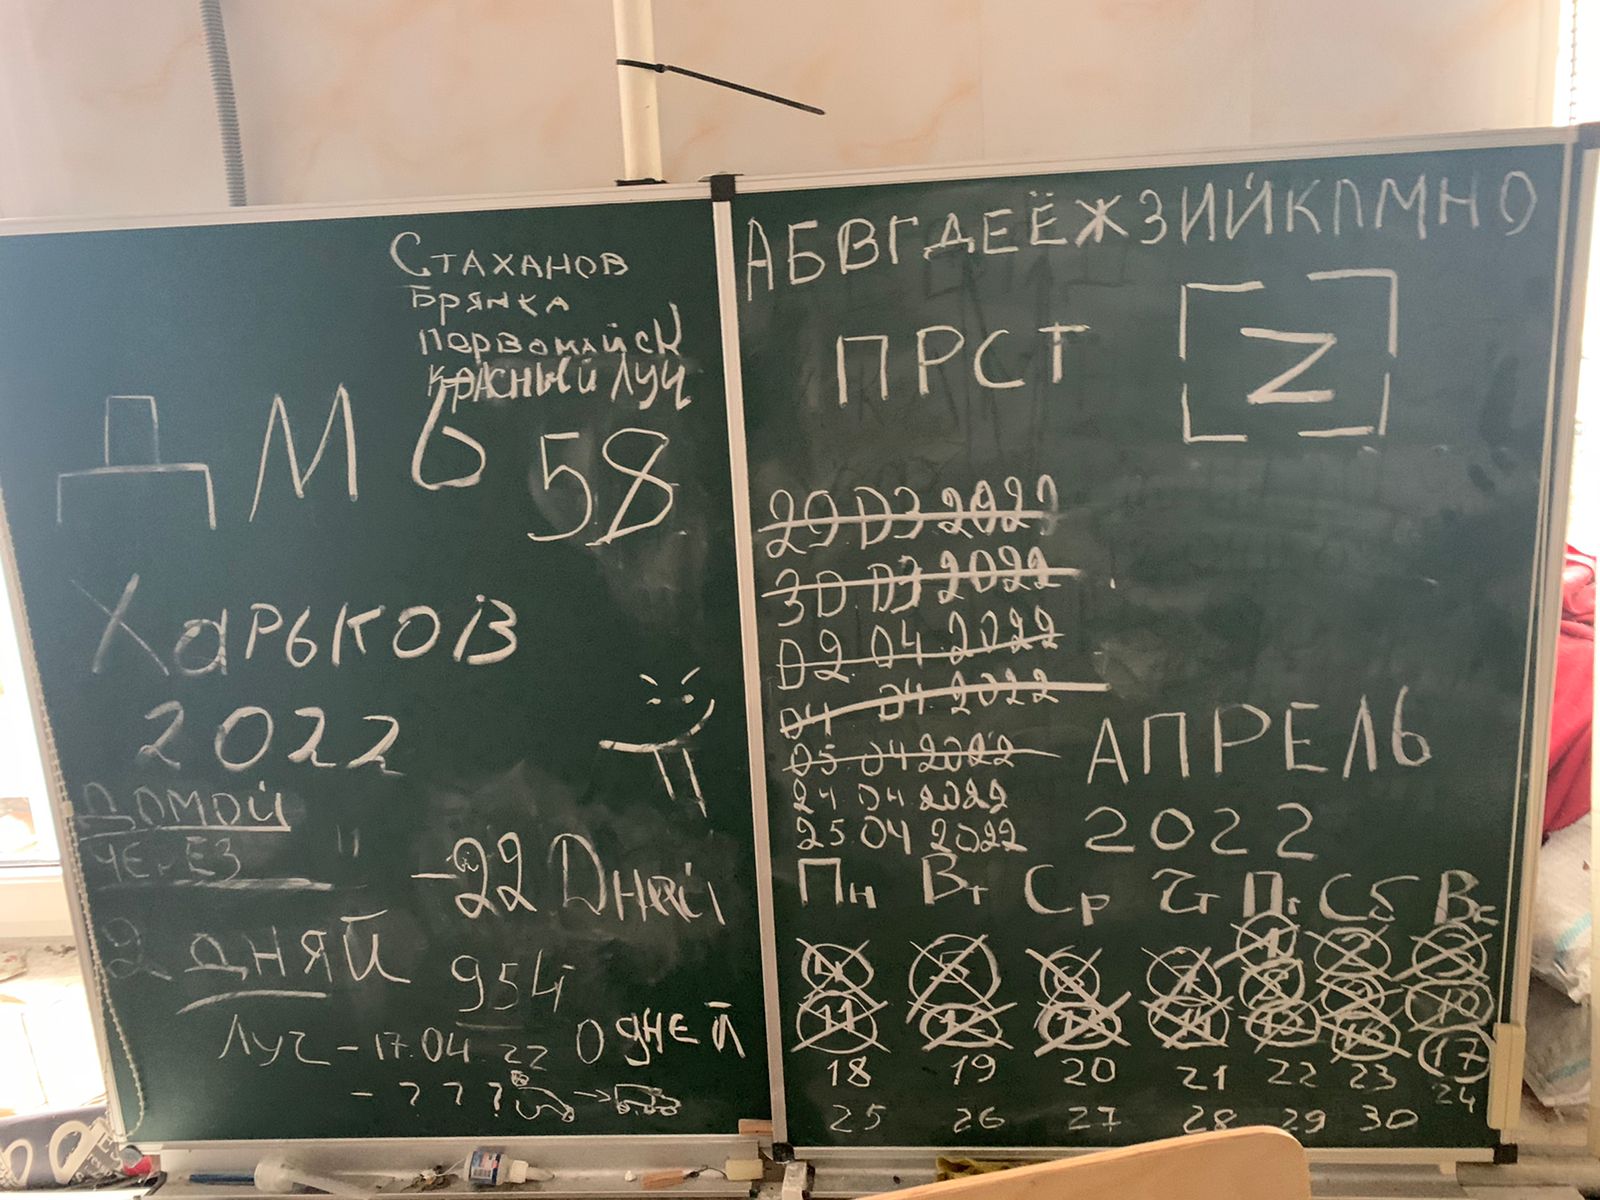 Стаханов
Брянка
Первомайск
Красный Луч
ДМБ 58
Харьков
2022
ДОМОЙ
ЧЕРЕЗ "
2 ДНЯЙ
-22 Dней
954
Луч - 17.04 22 0 дней
- ? ? ?
АБВГДЕЁЖЗИЙКЛМНО
ПРСТ
Z
29 03 2022
30 03 2022
02. 04. 2022
04 04. 2022
05 04 2022
24 04. 2022
25 04 2022
АПРЕЛЬ
2022
Пн Вт Ср Чт Пт Сб Вс
1 2 3
4 5 6 7 8 9 10
11 12 13 14 15 16 17
18 19 20 21 22 23 24
25 26 27 28 29 30